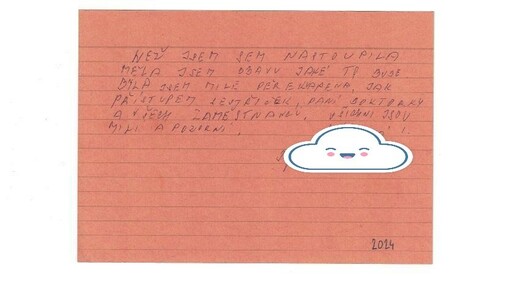 NEŽ JSEM SEM NASTOUPILA
MĚLA JSEM OBAVY JAKÉ TO BUDE
BYLA JSEM MILE PŘEKVAPENA, JAK
PŘÍSTUPEM SESTŘIČEK, PANÍ DOKTORKY
A VŠECH ZAMĚSTNANCŮ, VŠICHNI JSOU
MILÍ A POZORNÍ.
2024